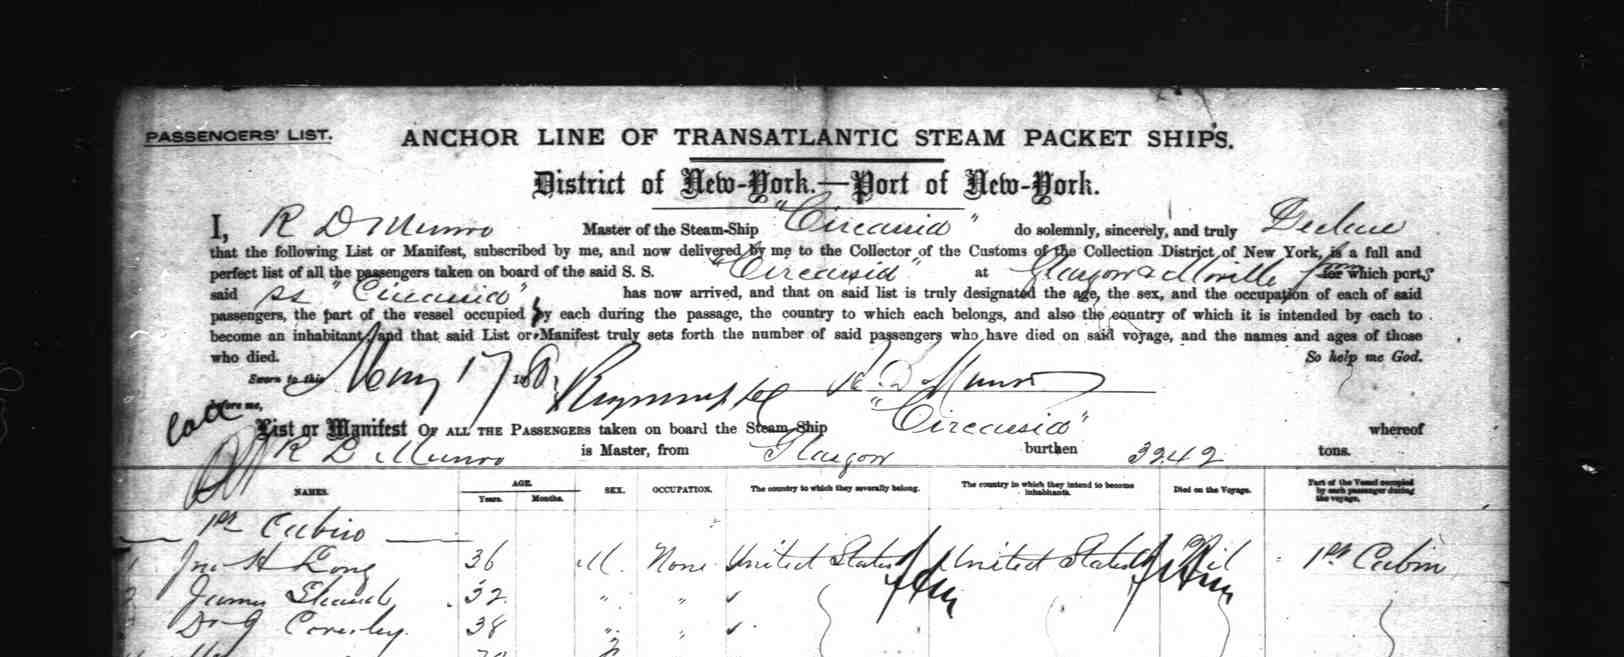 PASSENGERS' LIST. ANCHOR LINE OF TRANSATLANTIC STEAM PACKET SHIPS.
District of New-York.—Port of New-York.
I, R D Munro Master of the Steam-Ship "Circassia" do solemnly, sincerely, and truly Declare
that the following List or Manifest, subscribed by me, and now delivered by me to the Collector of the Customs of the Collection District of New York, is a full and
perfect list of all the passengers taken on board of the said S. S. "Circassia" at Glasgow & Moville from which ports
said ss "Circassia" has now arrived, and that on said list is truly designated the age, the sex, and the occupation of each of said
passengers, the part of the vessel occupied by each during the passage, the country to which each belongs, and also the country of which it is intended by each to
become an inhabitant; and that said List or Manifest truly sets forth the number of said passengers who have died on said voyage, and the names and ages of those
who died. So help me God.
Sworn to this May 17 188 R. D. Munro
before me,
List or Manifest OF ALL THE PASSENGERS taken on board the Steam-Ship "Circassia" whereof
R D Munro is Master, from Glasgow burthen 3242 tons.
NAMES. AGE. Years. Months. SEX. OCCUPATION. The country to which they severally belong. The country in which they intend to become inhabitants. Died on the Voyage. Part of the Vessel occupied by each passenger during the voyage.
1st Cabin
1 Jno H Long 36 M. None United States United States Nil 1st Cabin
2 James 32 " "
Dr G Coverley. 38 " "